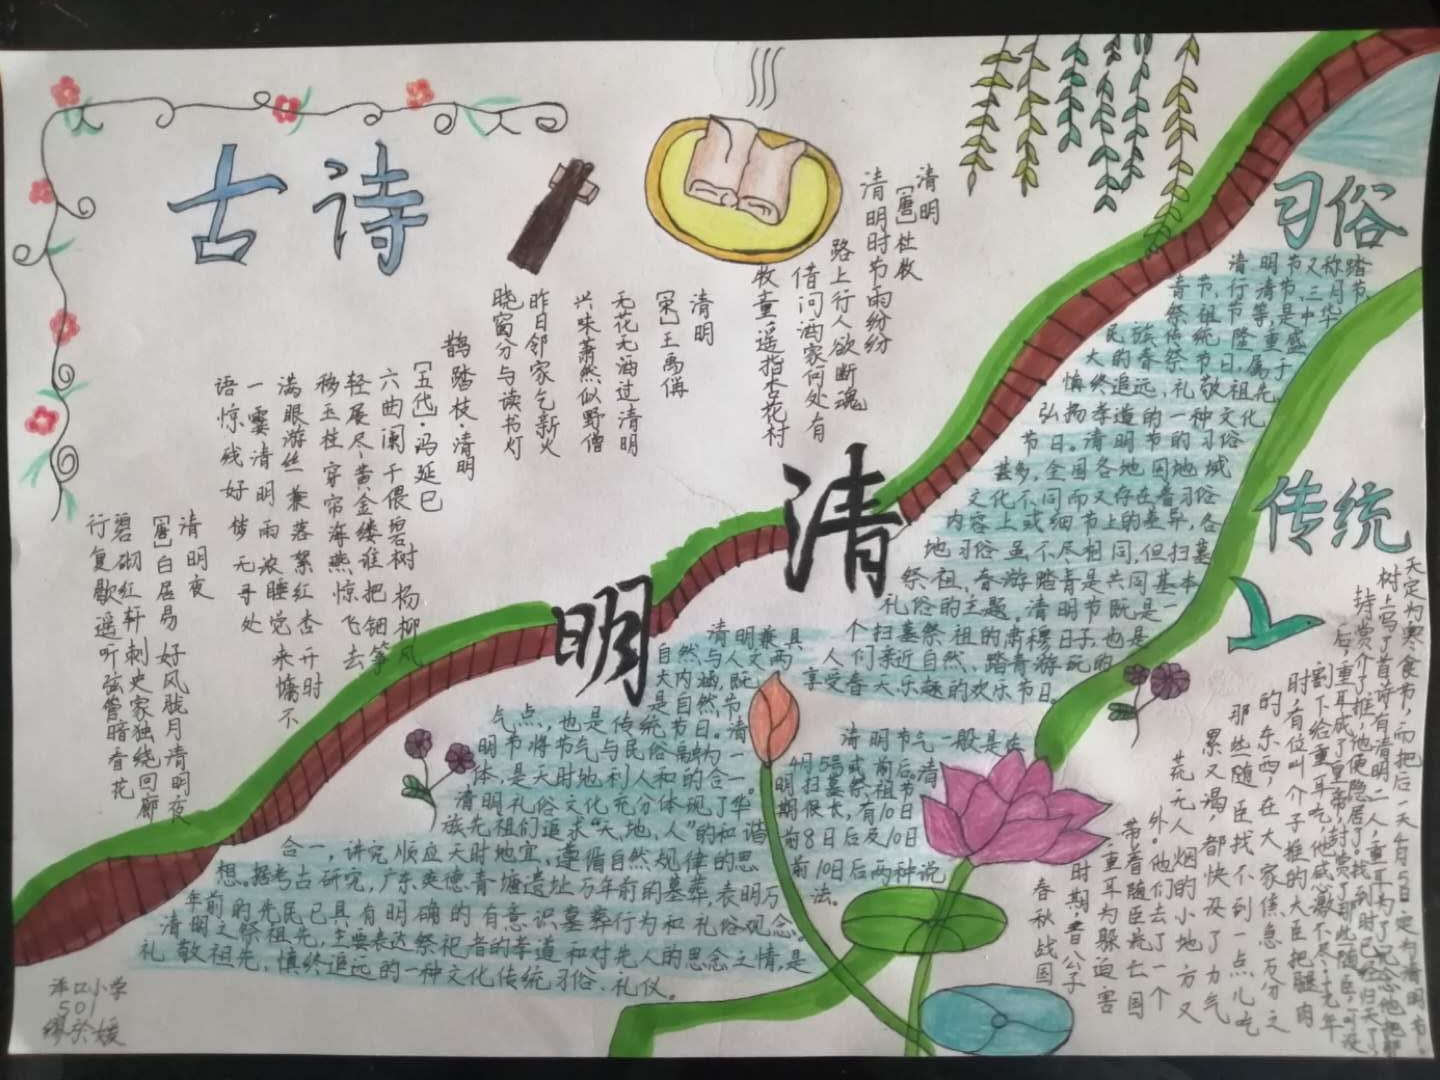 古诗
清明
[唐]杜牧
清明时节雨纷纷
路上行人欲断魂
借问酒家何处有
牧童遥指杏花村
清明
[宋]王禹偁
无花无酒过清明
兴味萧然似野僧
昨日邻家乞新火
晓窗分与读书灯
鹊踏枝·清明
[五代]·冯延巳
六曲阑干偎碧树 杨柳风
轻展尽黄金缕谁把钿筝
移玉柱穿帘海燕惊飞去
满眼游丝兼落絮红杏开时
一霎清明雨浓睡觉来慵不
语惊残好梦无寻处
清明夜
[唐]白居易 好风胧月清明夜
碧砌红轩刺史家独绕回廊
行复歇遥听弦管暗香花
清
明
习俗
清明节又称踏
青节、行清节、三月节
祭祖节等,是中华
民族传统隆重盛
大的春祭节日,属于
慎终追远、礼敬祖先
弘扬孝道的一种文化
节日。清明节的习俗
甚多,全国各地因地域
文化不同而又存在着习俗
内容上或细节上的差异,各
地习俗虽不尽相同,但扫墓
祭祖、春游踏青是共同基本
礼俗的主题。清明节既是一
个扫墓祭祖的肃穆日子,也是
人们亲近自然、踏青游玩的
享受春天乐趣的欢乐节日。
清明兼具
自然与人文两
大内涵,既
是自然节
气点,也是传统节日。清
明节将节气与民俗融为一
体,是天时地利人和的合一。
清明礼俗文化充分体现了华
族先祖们追求“天、地、人”的和谐
合一,讲究顺应天时地宜、遵循自然规律的思
想。据考古研究,广东英德青塘遗址万年前的墓葬,表明万
年前的先民已具有明确的有意识墓葬行为和礼俗观念。
清明之祭祖先,主要表达祭祀者的孝道和对先人的思念之情,是
礼敬祖先,慎终追远的一种文化传统习俗、礼仪。
清明节气一般是在
4月5号或前后。清
明扫墓祭祖节
期很长,有10日
前8日后及10日
前10日后两种说
法。
传统
春秋战国
时期,晋公子
重耳为躲迫害
带着随臣流亡国
外。他们去了一个
荒无人烟的小地方又
累又渴,都快没了力气
那些随臣找不到一点儿吃
的东西,在大家焦急万分之
时,有位叫介子推的大臣把腿肉
割下给重耳吃,他感激不尽……
后,重耳成了重帝,封赏了那些随臣,
持赏介子推,他便隐居了,找到时已经归天了,
树上写了首诗有清明二人,重耳为了纪念他把那
天定为寒食节,而把后一天4月5日定为清明节。
泽口小学
501